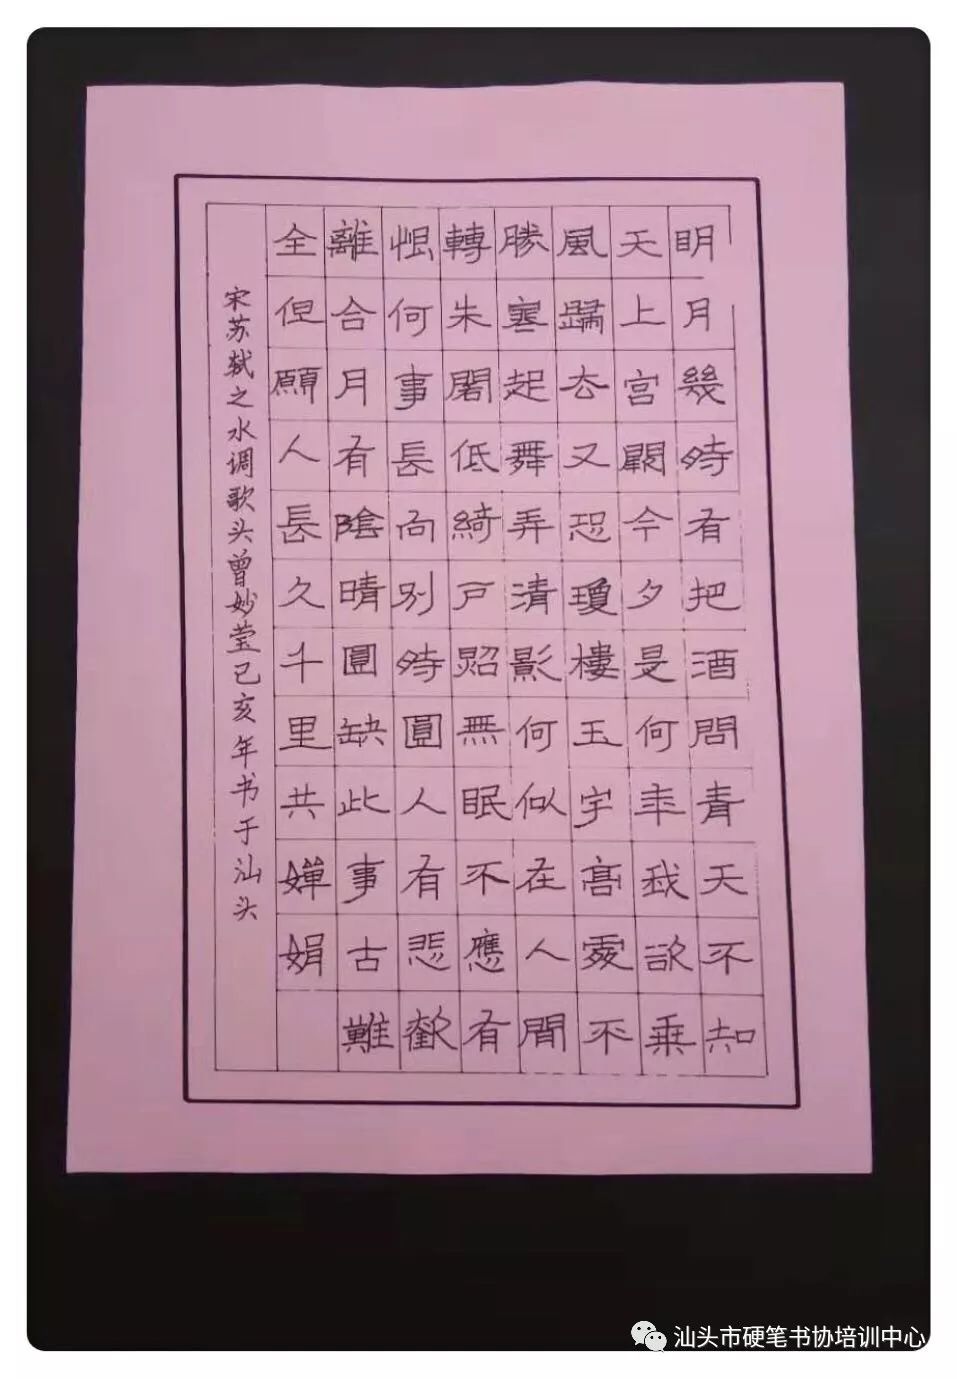 明月幾時有把酒問青天不知
天上宮闕今夕是何年我欲乗
風歸去又恐瓊樓玉宇高處不
勝寒起舞弄清影何似在人間
轉朱閣低綺戶照無眠不應有
恨何事長向別時圓人有悲歡
離合月有陰晴圓缺此事古難
全但願人長久千里共嬋娟
宋苏轼之水调歌头曾妙莹己亥年书于汕头
汕头市硬笔书协培训中心